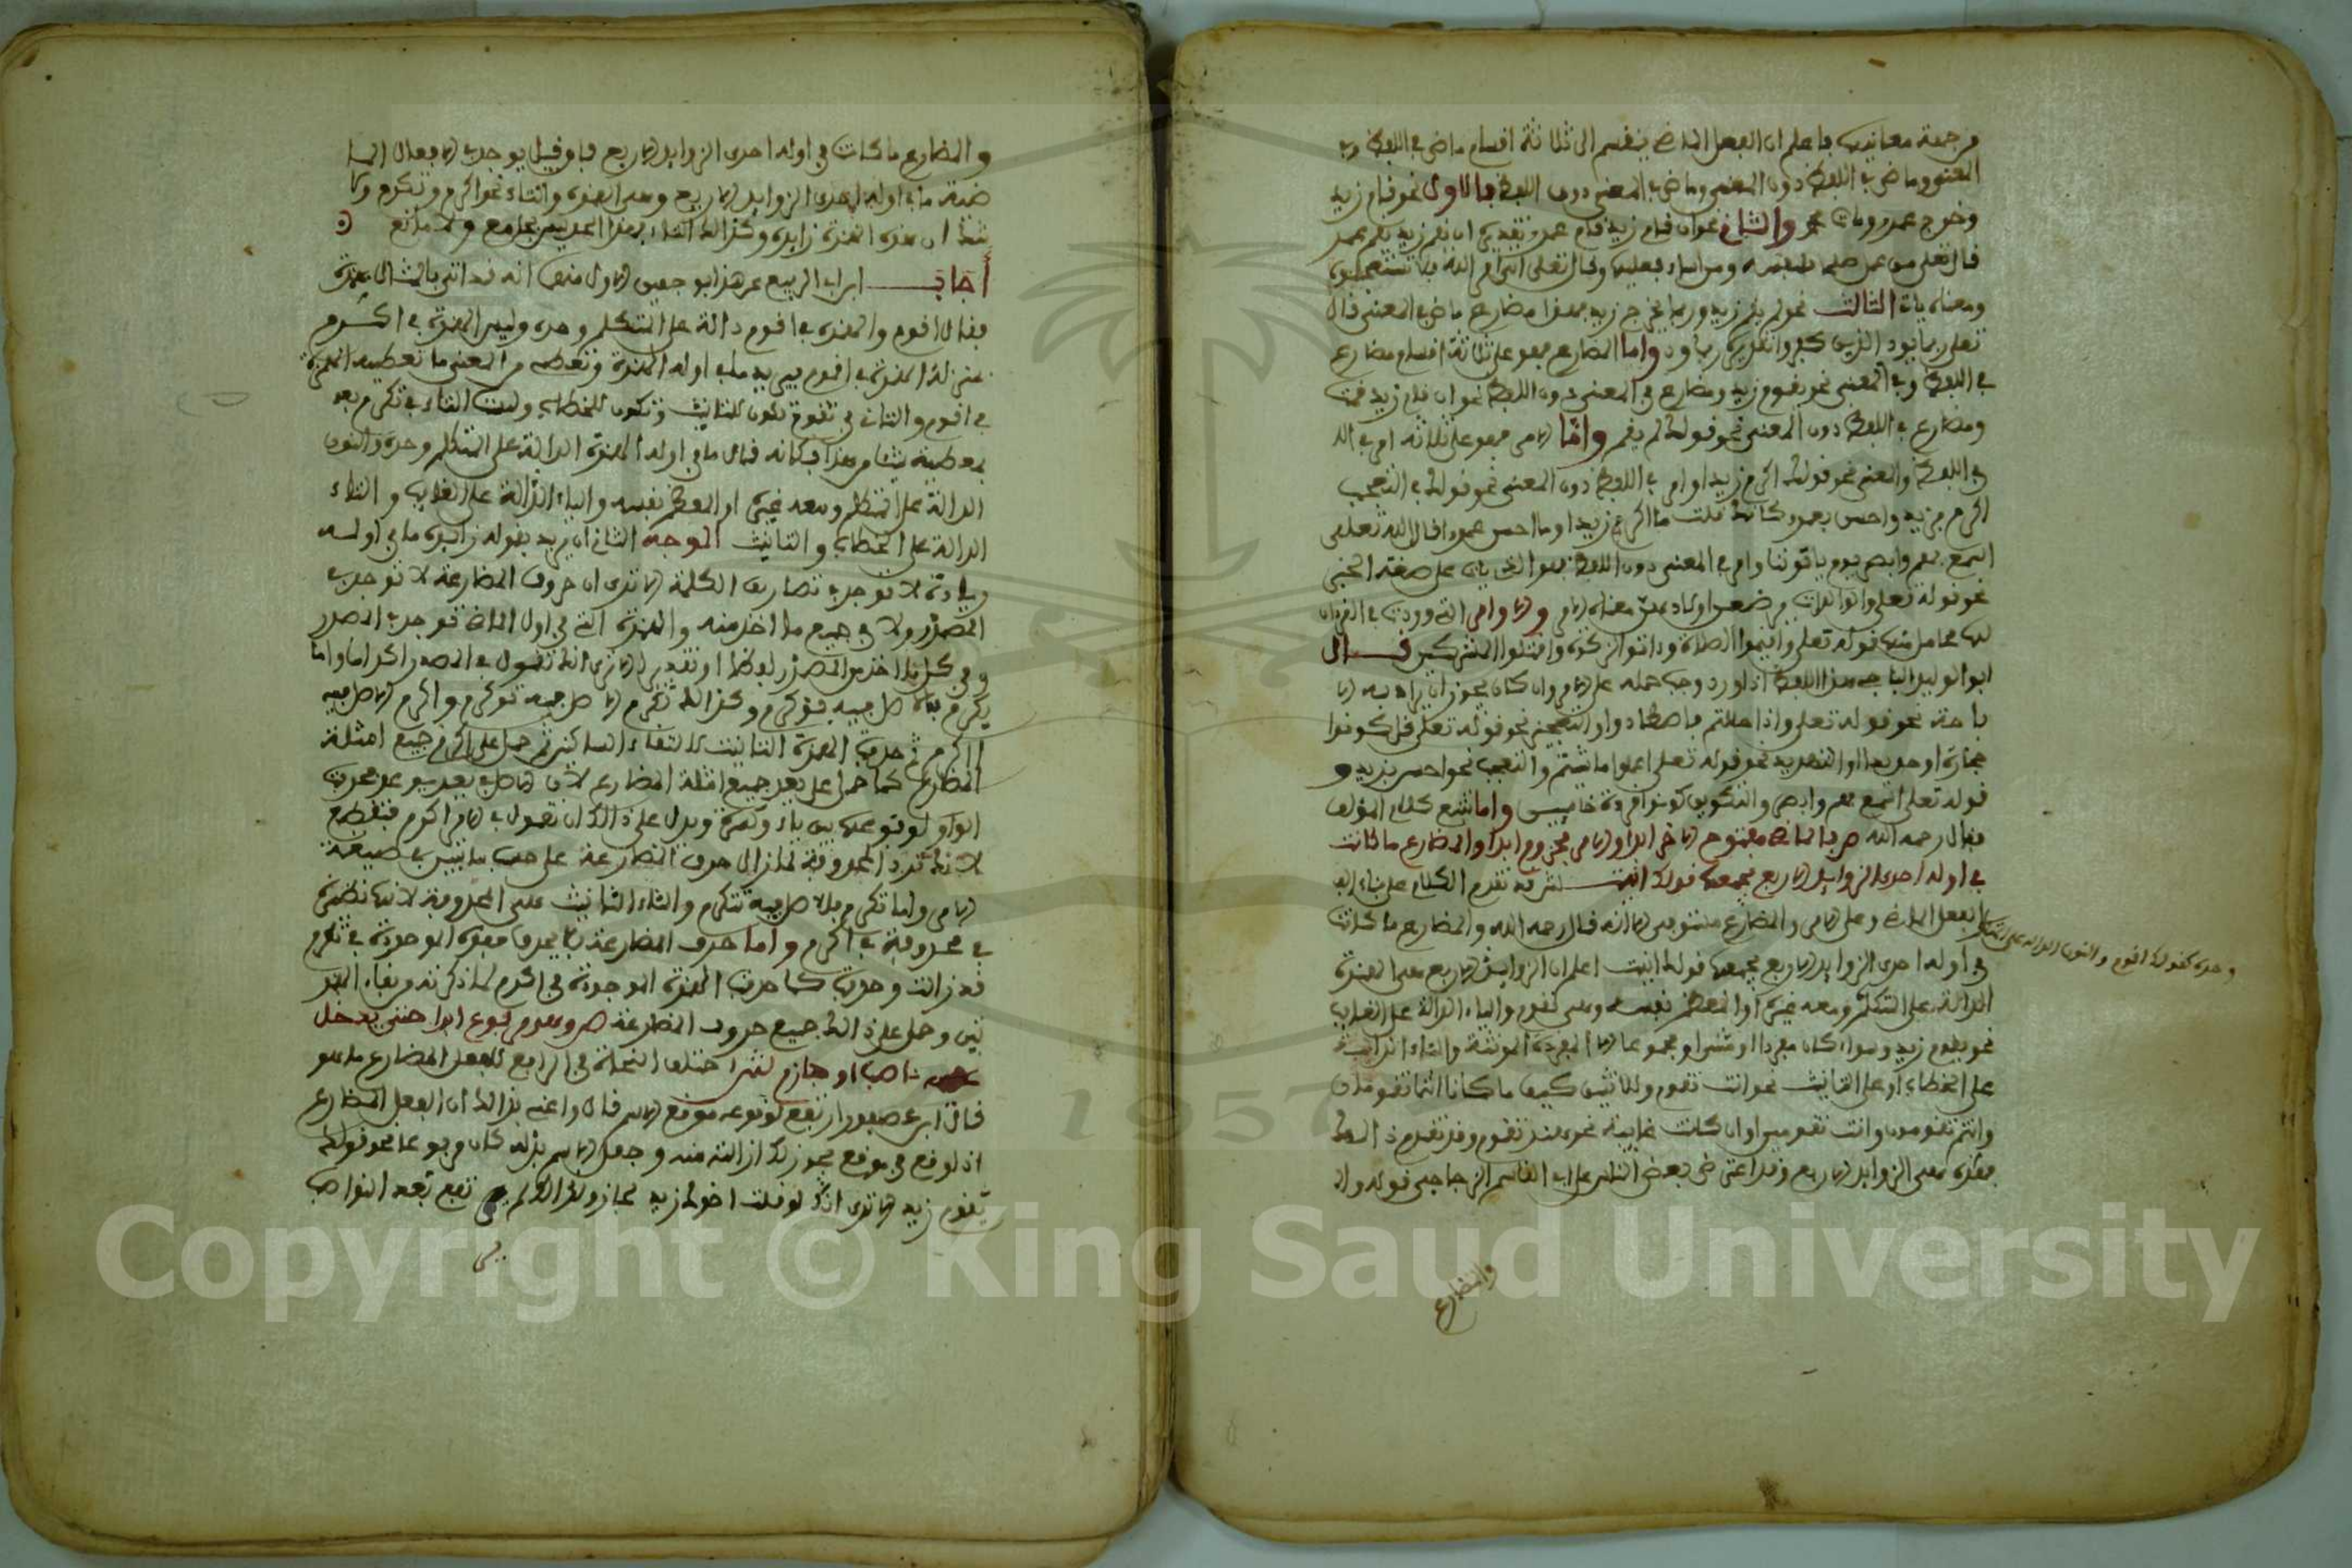 من جهة معانيه فاعلم ان الفعل الماضي ينقسم الى ثلاثة اقسام ماض في اللفظ وفي
المعنى وماض في اللفظ دون المعنى وماض في المعنى دون اللفظ فالاول نحو قام زيد
وخرج عمرو ومات والثاني نحو ان قام زيد قام عمرو تقديره ان يقم زيد يقم عمرو
قال تعلى من عمل صلحا فلنفسه ومن اساء فعليها وقال تعلى اتى امر الله فلا تستعجلوه
ومعناه يات الثالث نحو لم يقم زيد وربما يخرج زيد فهذا مضارع ماض في المعنى قال
تعلى ربما يود الذين كفروا تقديره ربما ود واما المضارع فهو على ثلاثة اقسام مضارع
في اللفظ وفي المعنى نحو يقوم زيد ومضارع في المعنى دون اللفظ نحو ان قام زيد قمت
ومضارع في اللفظ دون المعنى نحو قولك لم يقم واما الامر فهو على ثلاثة امر في الل
في اللفظ والمعنى نحو قولك اكرم زيدا وامر في اللفظ دون المعنى نحو قولك في التعجب
اكرم بزيد واحسن بعمرو كانك قلت ما اكرم زيدا وما احسن عمرا قال الله تعلى
اسمع بهم وابصر يوم ياتوننا وامر في المعنى دون اللفظ فهو الذي ياتي على صفة الخبر
نحو قوله تعلى والوالدات يرضعن اولادهن معناه الامر والاوامر التي وردت في القرءان
لها محامل منها قوله تعلى واقيموا الصلاة وءاتوا الزكوة واقتلوا المشركين قال
ابو الوليد الباجي هذا اللفظ اذا ورد وجب حمله على الامر وان كان يجوز ان يراد به الا
باحة نحو قوله تعلى واذا حللتم فاصطادوا والتعجيز نحو قوله تعلى قل كونوا
حجارة او حديدا والتهديد نحو قوله تعلى اعملوا ما شئتم والتعجب نحو احسن بزيد و
قوله تعلى اسمع بهم وابصر والتكوين كونوا قردة خاسين واما تتبع كلام المؤلف
فقال رحمه الله ص فالماضي مفتوح الاخر ابدا والامر مجزوم ابدا والمضارع ما كانت
في اوله احدى الزوايد الاربع يجمعها قولك انيت ش قد تقدم الكلام على بناء
الفعل الماضي وعلى الامر والمضارع الا انه قال رحمه الله والمضارع ما كانت
في اوله احدى الزوايد الاربع يجمعها قولك انيت اعلم ان الزوايد الاربع هي الهمزة
وحده كقولك اقوم والنون الدالة على
الدالة على المتكلم ومعه غيره او المعظم نفسه وهي كنقوم والياء الدالة على الغايب
نحو يقوم زيد وسواء كان مفردا او مثنى او مجموعا الا المفردة المونثة والتاء الدالة
على الخطاب او على التانيث نحو انت تقوم وللاثنين كيف ما كانا انتما تقومان
وانتم تقومون وانت تقومين او ان كانت غايبة نحو هند تقوم وقد تقدم ذالك
فهذه هي الزوايد الاربع وقد اعترض بعض الناس على ابي القاسم الزجاجي قوله
والمضارع
والمضارع ما كانت في اوله احدى الزوايد الاربع فان قيل يوجد في الافعال
ما في اوله احدى الزوايد الاربع وهي الهمزة والتاء نحو اكرم وتكرم ولا
شك ان هذه الهمزة زايدة وكذالك التاء فهذا الحد ليس بجامع ولا مانع
أجاب ابن ابي الربيع عن هذا بوجهين الاول منهما انه قد اتى بالمثال
فقال اقوم والهمزة في اقوم دالة على المتكلم وحده وليس الهمزة في اكرم
بمنزلة الهمزة في اقوم فيريد ما في اوله الهمزة وتعطي من المعنى ما تعطيه الهمزة
في اقوم والتاء في تقوم تكون للتانيث وتكون للخطاب وليست التاء في تكرم
بمعطية شيئا من هذا فكانه قال ما في اوله الهمزة الدالة على المتكلم وحده والنون
الدالة على المتكلم ومعه غيره او المعظم نفسه والياء الدالة على الغايب والتاء
الدالة على الخطاب والتانيث الوجه الثاني ان يريد بقوله زايدة ما في اوله
زيادة لا توجد في تصاريف الكلمة الا ترى ان حروف المضارعة لا توجد في
المصدر ولا في جميع ما اخذ منه والهمزة التي في اول الماضي توجد في المصدر
وفي كل ما اخذ من المصدر لفظا او تقديرا الا ترى انك تقول في المصدر اكراما واما
يكرم فالاصل فيه يؤكرم وكذالك تكرم الاصل فيه تؤكرم واكرم الاصل فيه
ااكرم ثم حذفت الهمزة الثانية ثم حمل على اكرم جميع امثلة
المضارع كما حمل على يعد جميع امثلة المضارع لان الاصل يوعد فحذفت
الواو لوقوعها بين ياء وكسرة ويدل على ذالك ان تقول في الامر اكرم فتقطع
لانك ترد المحذوفة لما زال حرف المضارعة على حسب ما تبين في صيغة
الامر واما تكرم فالاصل فيه تتكرم والتاء الثانية هي المحذوفة لانها نظيرة
المحذوفة في اكرم واما حرف المضارعة فلا يحذف فهذه الموجودة في تكرم
قد زالت وحذفت كما حذفت الهمزة الموجودة في اكرم لما ذكرته من التقاء الهمز
تين وحمل على ذالك جميع حروف المضارعة ص وهو مرفوع ابدا حتى يدخل
ناصب او جازم ش اختلف النحاة في الرافع للفعل المضارع ما هو
قال ابن عصفور ارتفع لوقوعه موقع الاسم قال واعني بذالك ان الفعل المضارع
اذا وقع في موضع يجوز لك ازالته منه وجعل الاسم بدله كان مرفوعا نحو قولك
يقوم زيد الا ترى انك لو قلت اخوك زيد لجاز وكذالك لم تقع بعد النواصب